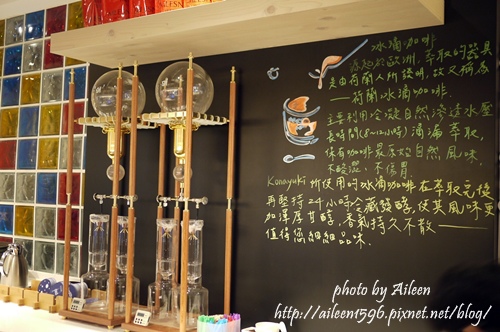 冰滴咖啡
源起於歐洲,萃取的器具
是由荷蘭人所發明,故又稱為
——荷蘭冰滴咖啡.
主要利用冷凝自然滲透水壓
長時間(8~12小時)滴漏萃取,
保有咖啡最原始自然風味,
不酸澀.不傷胃.
Konayuki 所使用的冰滴咖啡在萃取完後
再堅持24小時冷藏發酵,使其風味更
加濃厚甘醇,香氣持久不散——
值得您細細品味.
photo by Aileen
http://aileen1596.pixnet.net/blog/